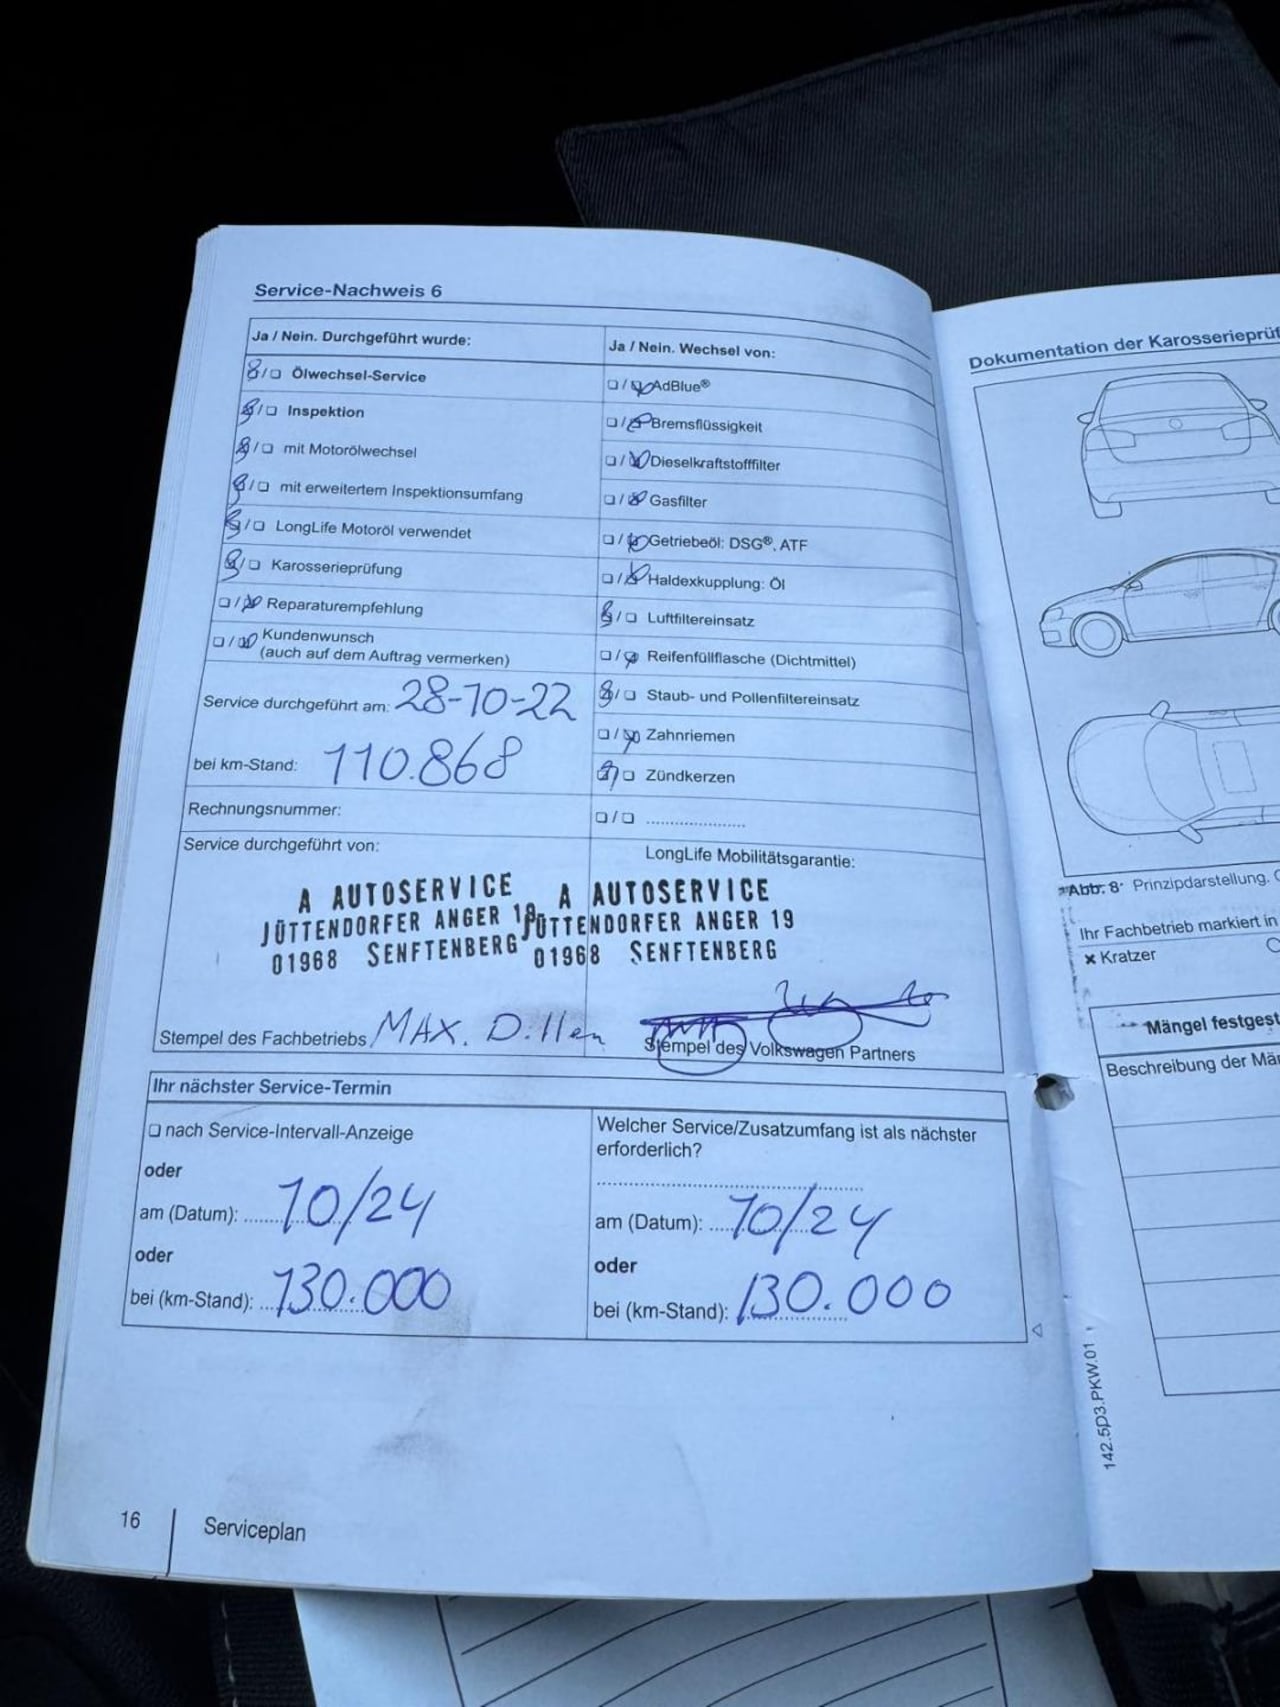 Service-Nachweis 6
Ja / Nein. Durchgeführt wurde:
☒/☐ Ölwechsel-Service
☒/☐ Inspektion
☒/☐ mit Motorölwechsel
☒/☐ mit erweitertem Inspektionsumfang
☒/☐ LongLife Motoröl verwendet
☒/☐ Karosserieprüfung
☐/☒ Reparaturempfehlung
☐/☒ Kundenwunsch
(auch auf dem Auftrag vermerken)
Service durchgeführt am: 28-10-22
bei km-Stand: 110.868
Rechnungsnummer:
Ja / Nein. Wechsel von:
☐/☒ AdBlue®
☐/☒ Bremsflüssigkeit
☐/☒ Dieselkraftstofffilter
☐/☒ Gasfilter
☐/☒ Getriebeöl: DSG®, ATF
☐/☒ Haldexkupplung: Öl
☒/☐ Luftfiltereinsatz
☐/☒ Reifenfüllflasche (Dichtmittel)
☒/☐ Staub- und Pollenfiltereinsatz
☐/☒ Zahnriemen
☒/☐ Zündkerzen
☐/☐ ......................
Service durchgeführt von:
A AUTOSERVICE
JÜTTENDORFER ANGER 19
01968 SENFTENBERG
Stempel des Fachbetriebs MAX. D.llen
LongLife Mobilitätsgarantie:
A AUTOSERVICE
JÜTTENDORFER ANGER 19
01968 SENFTENBERG
Stempel des Volkswagen Partners
Ihr nächster Service-Termin
☐ nach Service-Intervall-Anzeige
oder
am (Datum): 10/24
oder
bei (km-Stand): 130.000
Welcher Service/Zusatzumfang ist als nächster
erforderlich?
am (Datum): 10/24
oder
bei (km-Stand): 130.000
16
Serviceplan
Dokumentation der
Abb. 8 Prinzipdarstellung.
Ihr Fachbetrieb markiert in
x Kratzer
Mängel
Beschreibung der
142.5D3.PKW.01